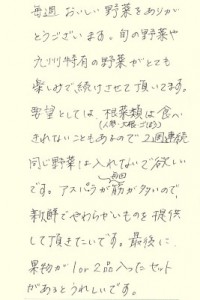 毎週 おいしい野菜をありが
とうございます。旬の野菜や
九州特有の野菜がとても
楽しみで続けさせて頂いてます。
要望としては、根菜類は食べ
(人参・大根・ごぼう)
きれないこともあるので2週連続
同じ野菜は入れないで欲しい
です。アスパラが毎回筋が多いので、
新鮮でやわらかいものを提供
して頂きたいです。最後に、
果物が1or2品入ったセット
があるとうれしいです。